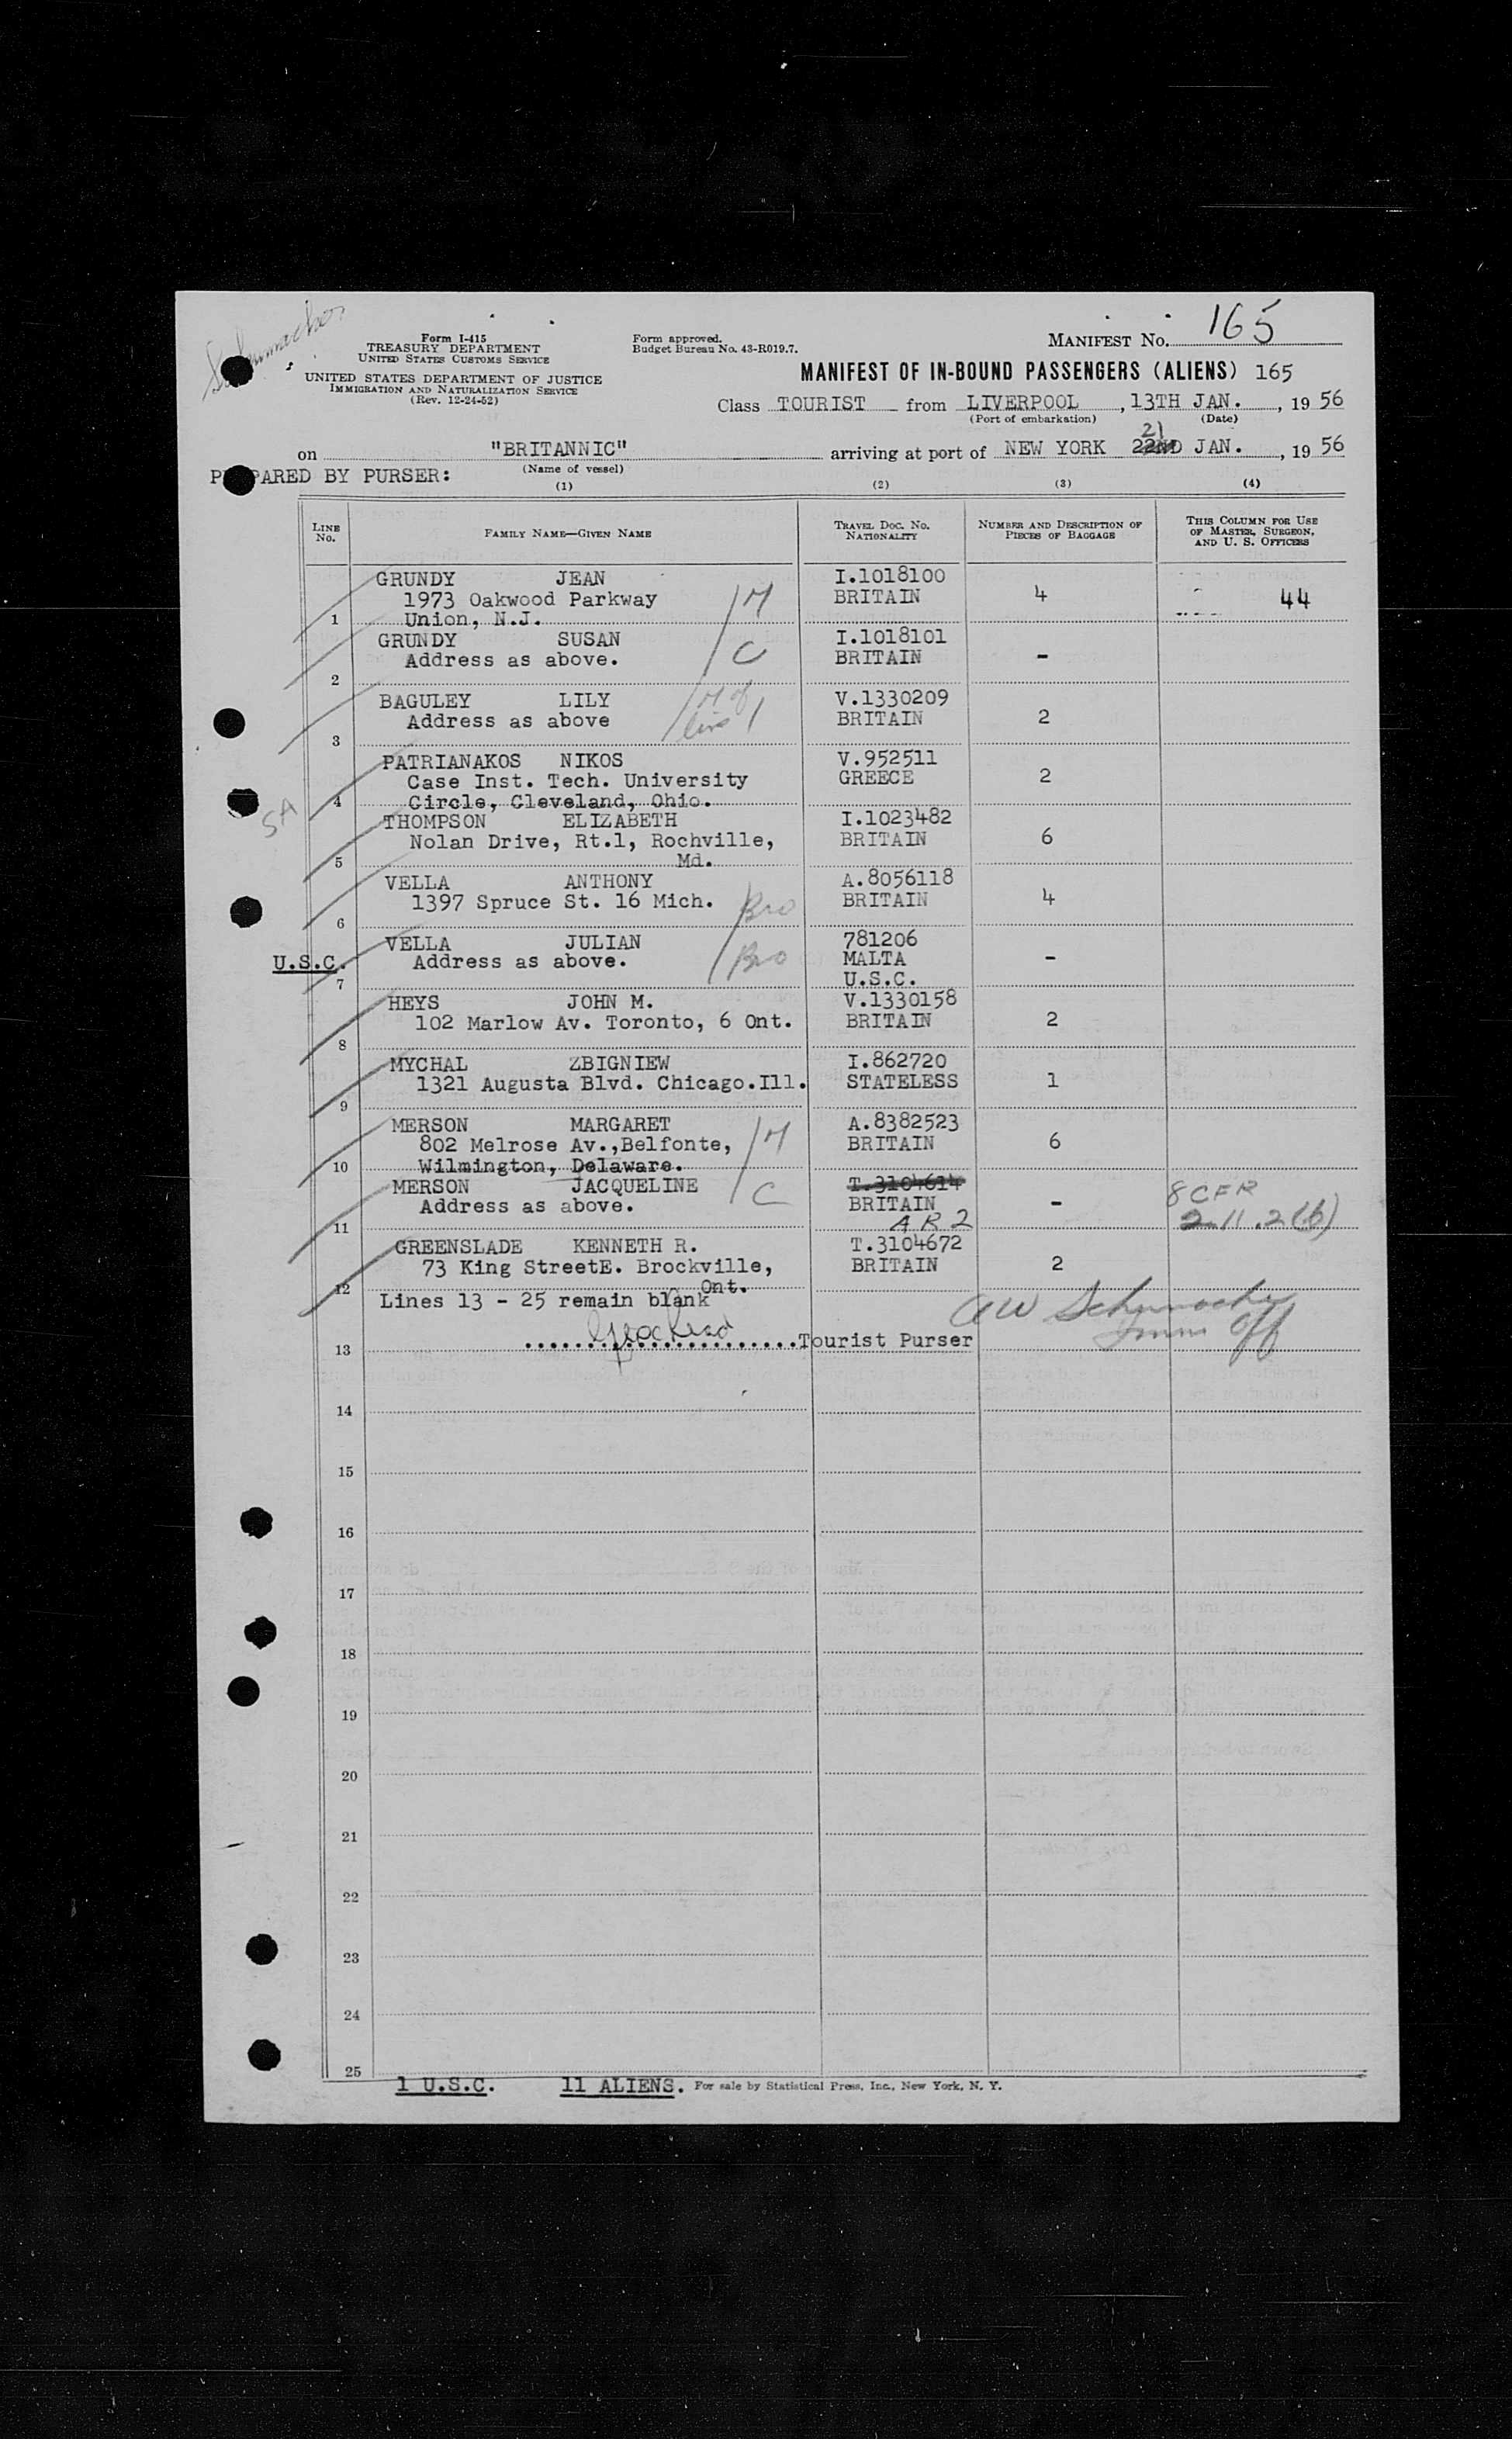 Schumacher
Form I-415
TREASURY DEPARTMENT
UNITED STATES CUSTOMS SERVICE
UNITED STATES DEPARTMENT OF JUSTICE
IMMIGRATION AND NATURALIZATION SERVICE
(Rev. 12-24-52)
Form approved.
Budget Bureau No. 43-R019.7.
MANIFEST No. 165
MANIFEST OF IN-BOUND PASSENGERS (ALIENS) 165
Class TOURIST from LIVERPOOL, 13TH JAN., 1956
(Port of embarkation) (Date)
21
on "BRITANNIC" arriving at port of NEW YORK 22ND JAN., 1956
(Name of vessel)
PREPARED BY PURSER:
(1) (2) (3) (4)
LINE No. FAMILY NAME—GIVEN NAME TRAVEL DOC. No. NATIONALITY NUMBER AND DESCRIPTION OF PIECES OF BAGGAGE THIS COLUMN FOR USE OF MASTER, SURGEON, AND U. S. OFFICERS
GRUNDY JEAN I.1018100
1973 Oakwood Parkway M BRITAIN 4 44
1 Union, N.J.
GRUNDY SUSAN I.1018101
Address as above. C BRITAIN -
2
BAGULEY LILY M of V.1330209
Address as above line 1 BRITAIN 2
3
PATRIANAKOS NIKOS V.952511
Case Inst. Tech. University GREECE 2
SA 4 Circle, Cleveland, Ohio.
THOMPSON ELIZABETH I.1023482
Nolan Drive, Rt.1, Rochville, BRITAIN 6
5 Md.
VELLA ANTHONY A.8056118
1397 Spruce St. 16 Mich. Bro BRITAIN 4
6
VELLA JULIAN 781206
U.S.C. Address as above. Bro MALTA -
7 U.S.C.
HEYS JOHN M. V.1330158
102 Marlow Av. Toronto, 6 Ont. BRITAIN 2
8
MYCHAL ZBIGNIEW I.862720
1321 Augusta Blvd. Chicago.Ill. STATELESS 1
9
MERSON MARGARET A.8382523
802 Melrose Av.,Belfonte, M BRITAIN 6
10 Wilmington, Delaware.
MERSON JACQUELINE C T.3104614 8 CFR
Address as above. BRITAIN - 211.2(b)
11 AR2
GREENSLADE KENNETH R. T.3104672
73 King StreetE. Brockville, BRITAIN 2
12 Ont.
Lines 13 - 25 remain blank
AW Schumacher
Imm Off
13 Tourist Purser
14
15
16
17
18
19
20
21
22
23
24
25
1 U.S.C. 11 ALIENS. For sale by Statistical Press, Inc., New York, N. Y.